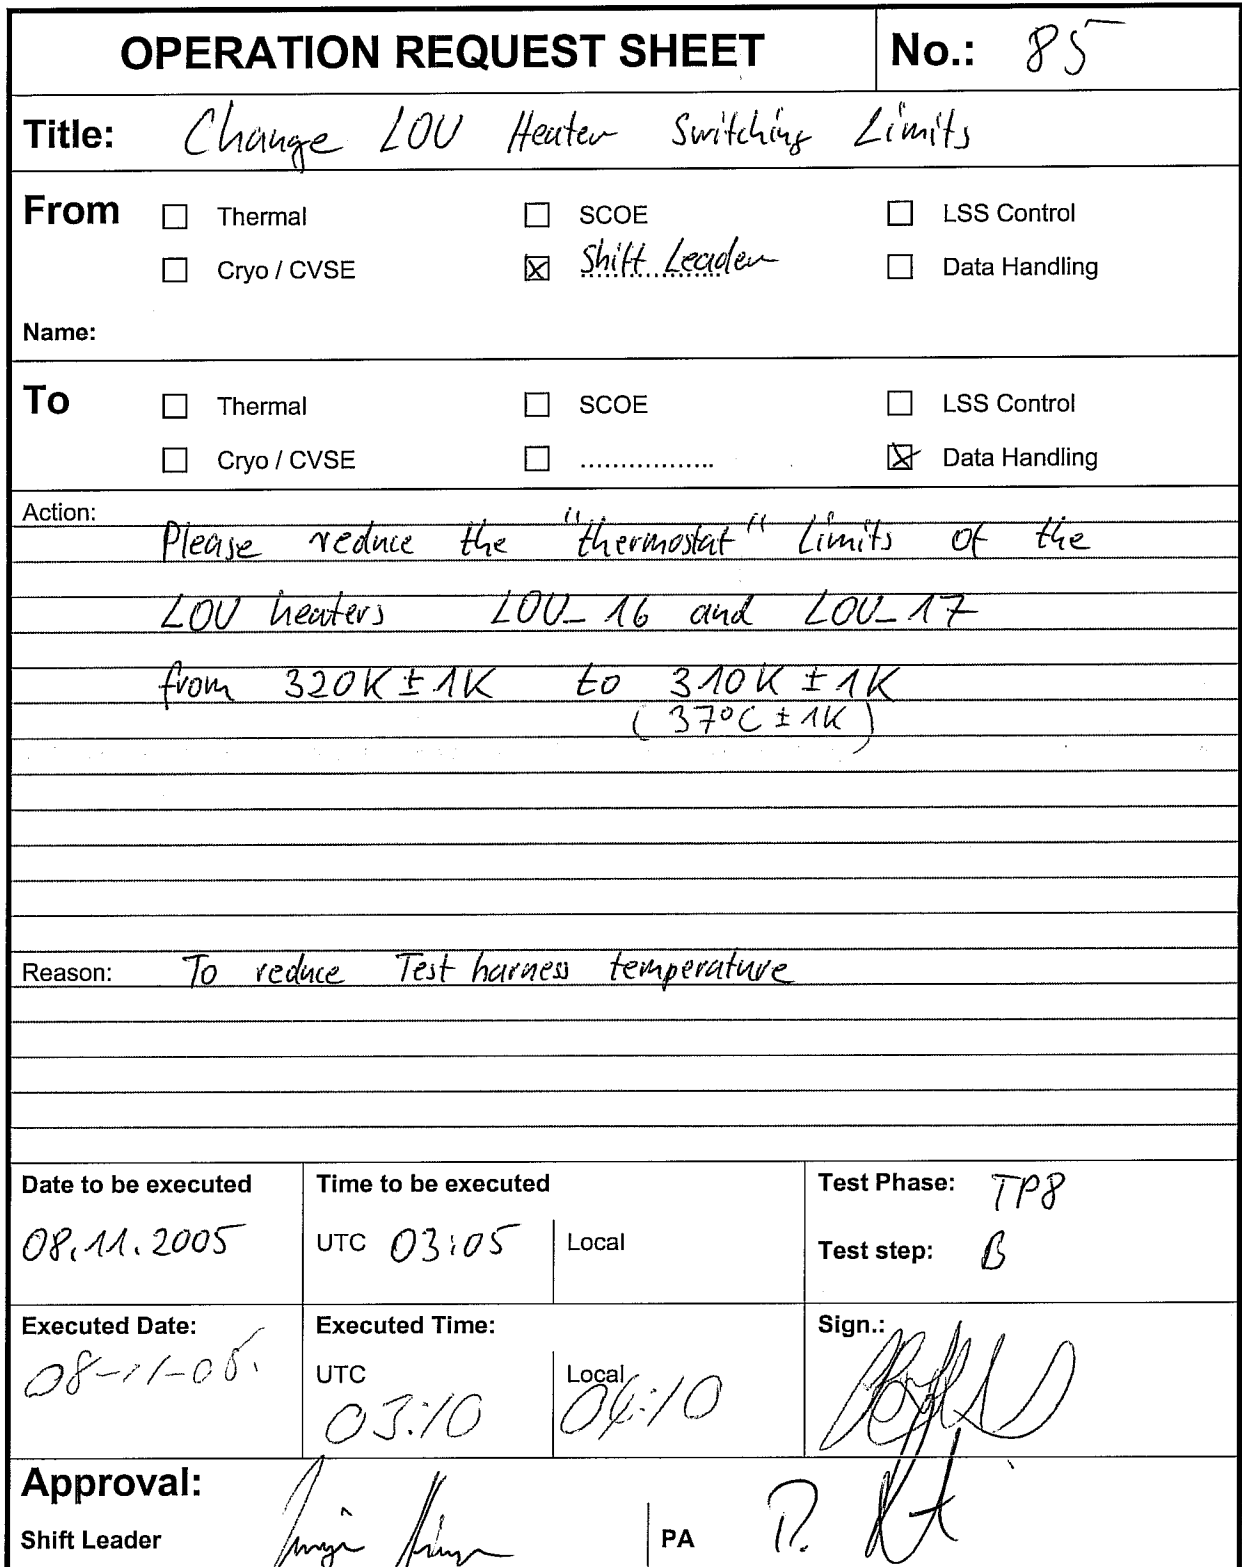 OPERATION REQUEST SHEET No.: 85
Title: Change LOU Heater Switching Limits
From Thermal SCOE LSS Control
Cryo / CVSE Shift Leader Data Handling
Name:
To Thermal SCOE LSS Control
Cryo / CVSE ................. Data Handling
Action:
Please reduce the "thermostat" limits of the
LOU heaters LOU_16 and LOU_17
from 320K ± 1K to 310K ± 1K
(37°C ± 1K)
Reason: To reduce Test harness temperature
Date to be executed Time to be executed Test Phase: TP8
08.11.2005 UTC 03:05 Local
Test step: B
Executed Date: Executed Time: Sign.:
08-11-05. UTC 03:10 Local 04:10
Approval:
Shift Leader PA